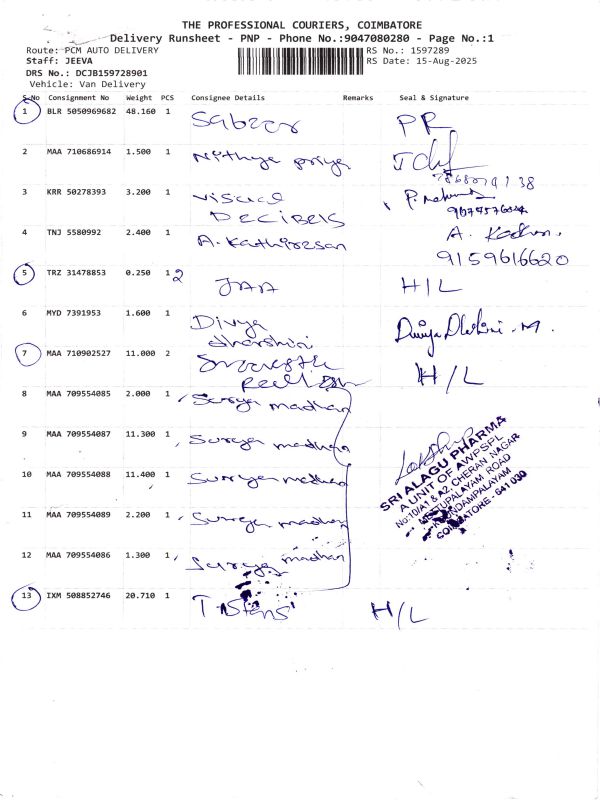 THE PROFESSIONAL COURIERS, COIMBATORE
Delivery Runsheet - PNP - Phone No.:9047080280 - Page No.:1
Route: PCM AUTO DELIVERY RS No.: 1597289
Staff: JEEVA RS Date: 15-Aug-2025
DRS No.: DCJB159728901
Vehicle: Van Delivery
S.No Consignment No Weight PCS Consignee Details Remarks Seal & Signature
1 BLR 5050969682 48.160 1 Sabeer PR
2 MAA 710686914 1.500 1 Nithya priya
3 KRR 50278393 3.200 1 visual
DECIBELS
4 TNJ 5580992 2.400 1 A. Kathiresan A.
9159616620
5 TRZ 31478853 0.250 1 2 JAA H/L
6 MYD 7391953 1.600 1 Divya
dharshini
7 MAA 710902527 11.000 2 H/L
8 MAA 709554085 2.000 1 Surya madhan
9 MAA 709554087 11.300 1 Surya madhan
10 MAA 709554088 11.400 1 Surya madhan
11 MAA 709554089 2.200 1 Surya madhan
12 MAA 709554086 1.300 1 Surya madhan
SRI ALAGU PHARMA
A UNIT OF AWPSPL
No:10/A1 & A2, CHERAN NAGAR
METTUPALAYAM ROAD
KOUNDAMPALAYAM
COIMBATORE - 641 030
13 IXM 508852746 20.710 1 H/L